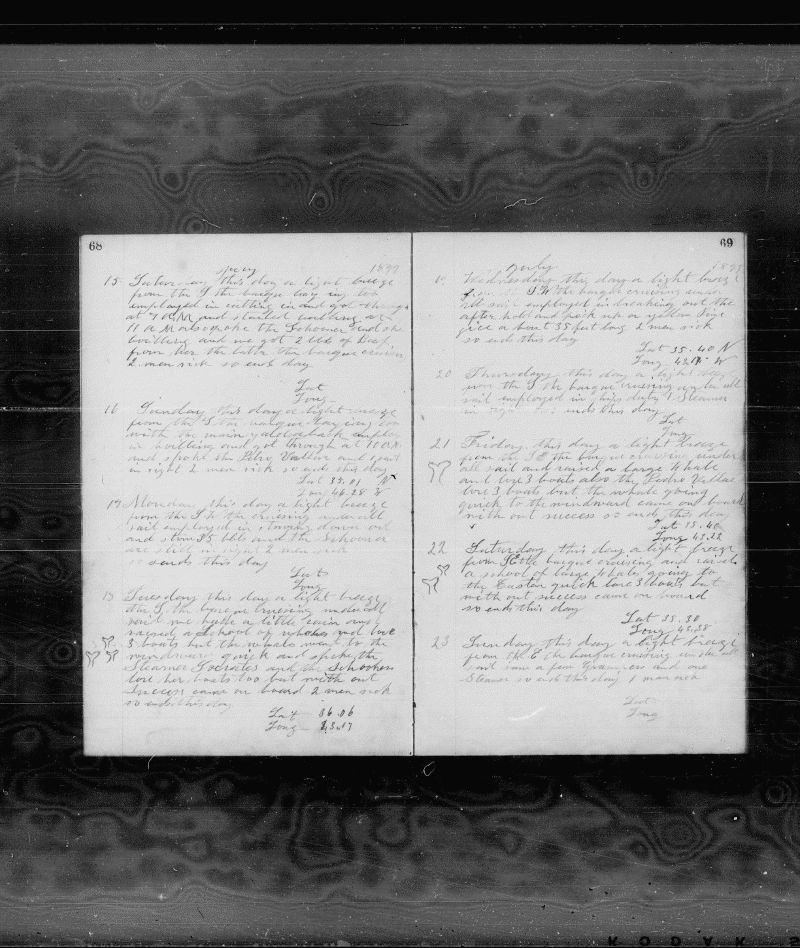 68
July 1899
15 Saturday this day a light breeze
from the S the barque lay in
employed in cutting in and got through
at 7 AM and started boiling at
11 A M also spoke the Schooner and she
boilling and we got 2 bbls of Beef
from her the latter the barque cruising
2 men sick so ends day
Lat
Long
16 Sunday this day a light breeze
from the S the barque laying
with the main yard aback employ
in boilling and got through at 11 AM
and spoke the Pedro Vallar and
in sight 2 men sick so ends this day
Lat 35.01 N
Long 46.28 W
17 Monday this day a light breeze
from the S the cruising under all
sail employed in stowing down oil
and stow 35 bbls and the Schooner
are still in sight 2 men sick
so ends this day
Lat
Long
18 Tuesday this day a light breeze
the S the barque cruising under all
sail a little rain and
raised a school of whales and lore
3 boats but the whales went to the
windward quick and spoke the
Steamer Socrates and the Schooner
lore her boats too but with out
Success came on board 2 men sick
so ends this day
Lat 36.06
Long 43.17
69
July 1899
19 Wednesday this day a light breeze
from S.W the barque cruising under
all sail employed in breaking out the
after hold and pick up a yellow Pine
piece about 35 feet long 2 men sick
so ends this day
Lat 35.40 N
Long W
20 Thursday this day a light breeze
from the S the barque cruising under all
sail employed in ships duty 1 Steamer
in sight so ends this day
Lat
Long
21 Friday this day a light breeze
from the S E the barque cruising under
all sail and raised a large Whale
and lore 3 boats also the Pedro Vallar
lore 3 boats but the whale going
quick to the windward came on board
with out success so ends this day
Lat 35.40
Long 43.22
22 Saturday this day a light breeze
from S E the barque cruising and raised
a school of large Whales going to
the Easter quick lore 3 boats but
with out success came on board
so ends this day
Lat 35.30
Long 43.38
23 Sunday this day a light breeze
from the E the barque cruising under all
sail saw a few and one
Steamer so ends this day 1 man sick
Lat
Long
KODAK